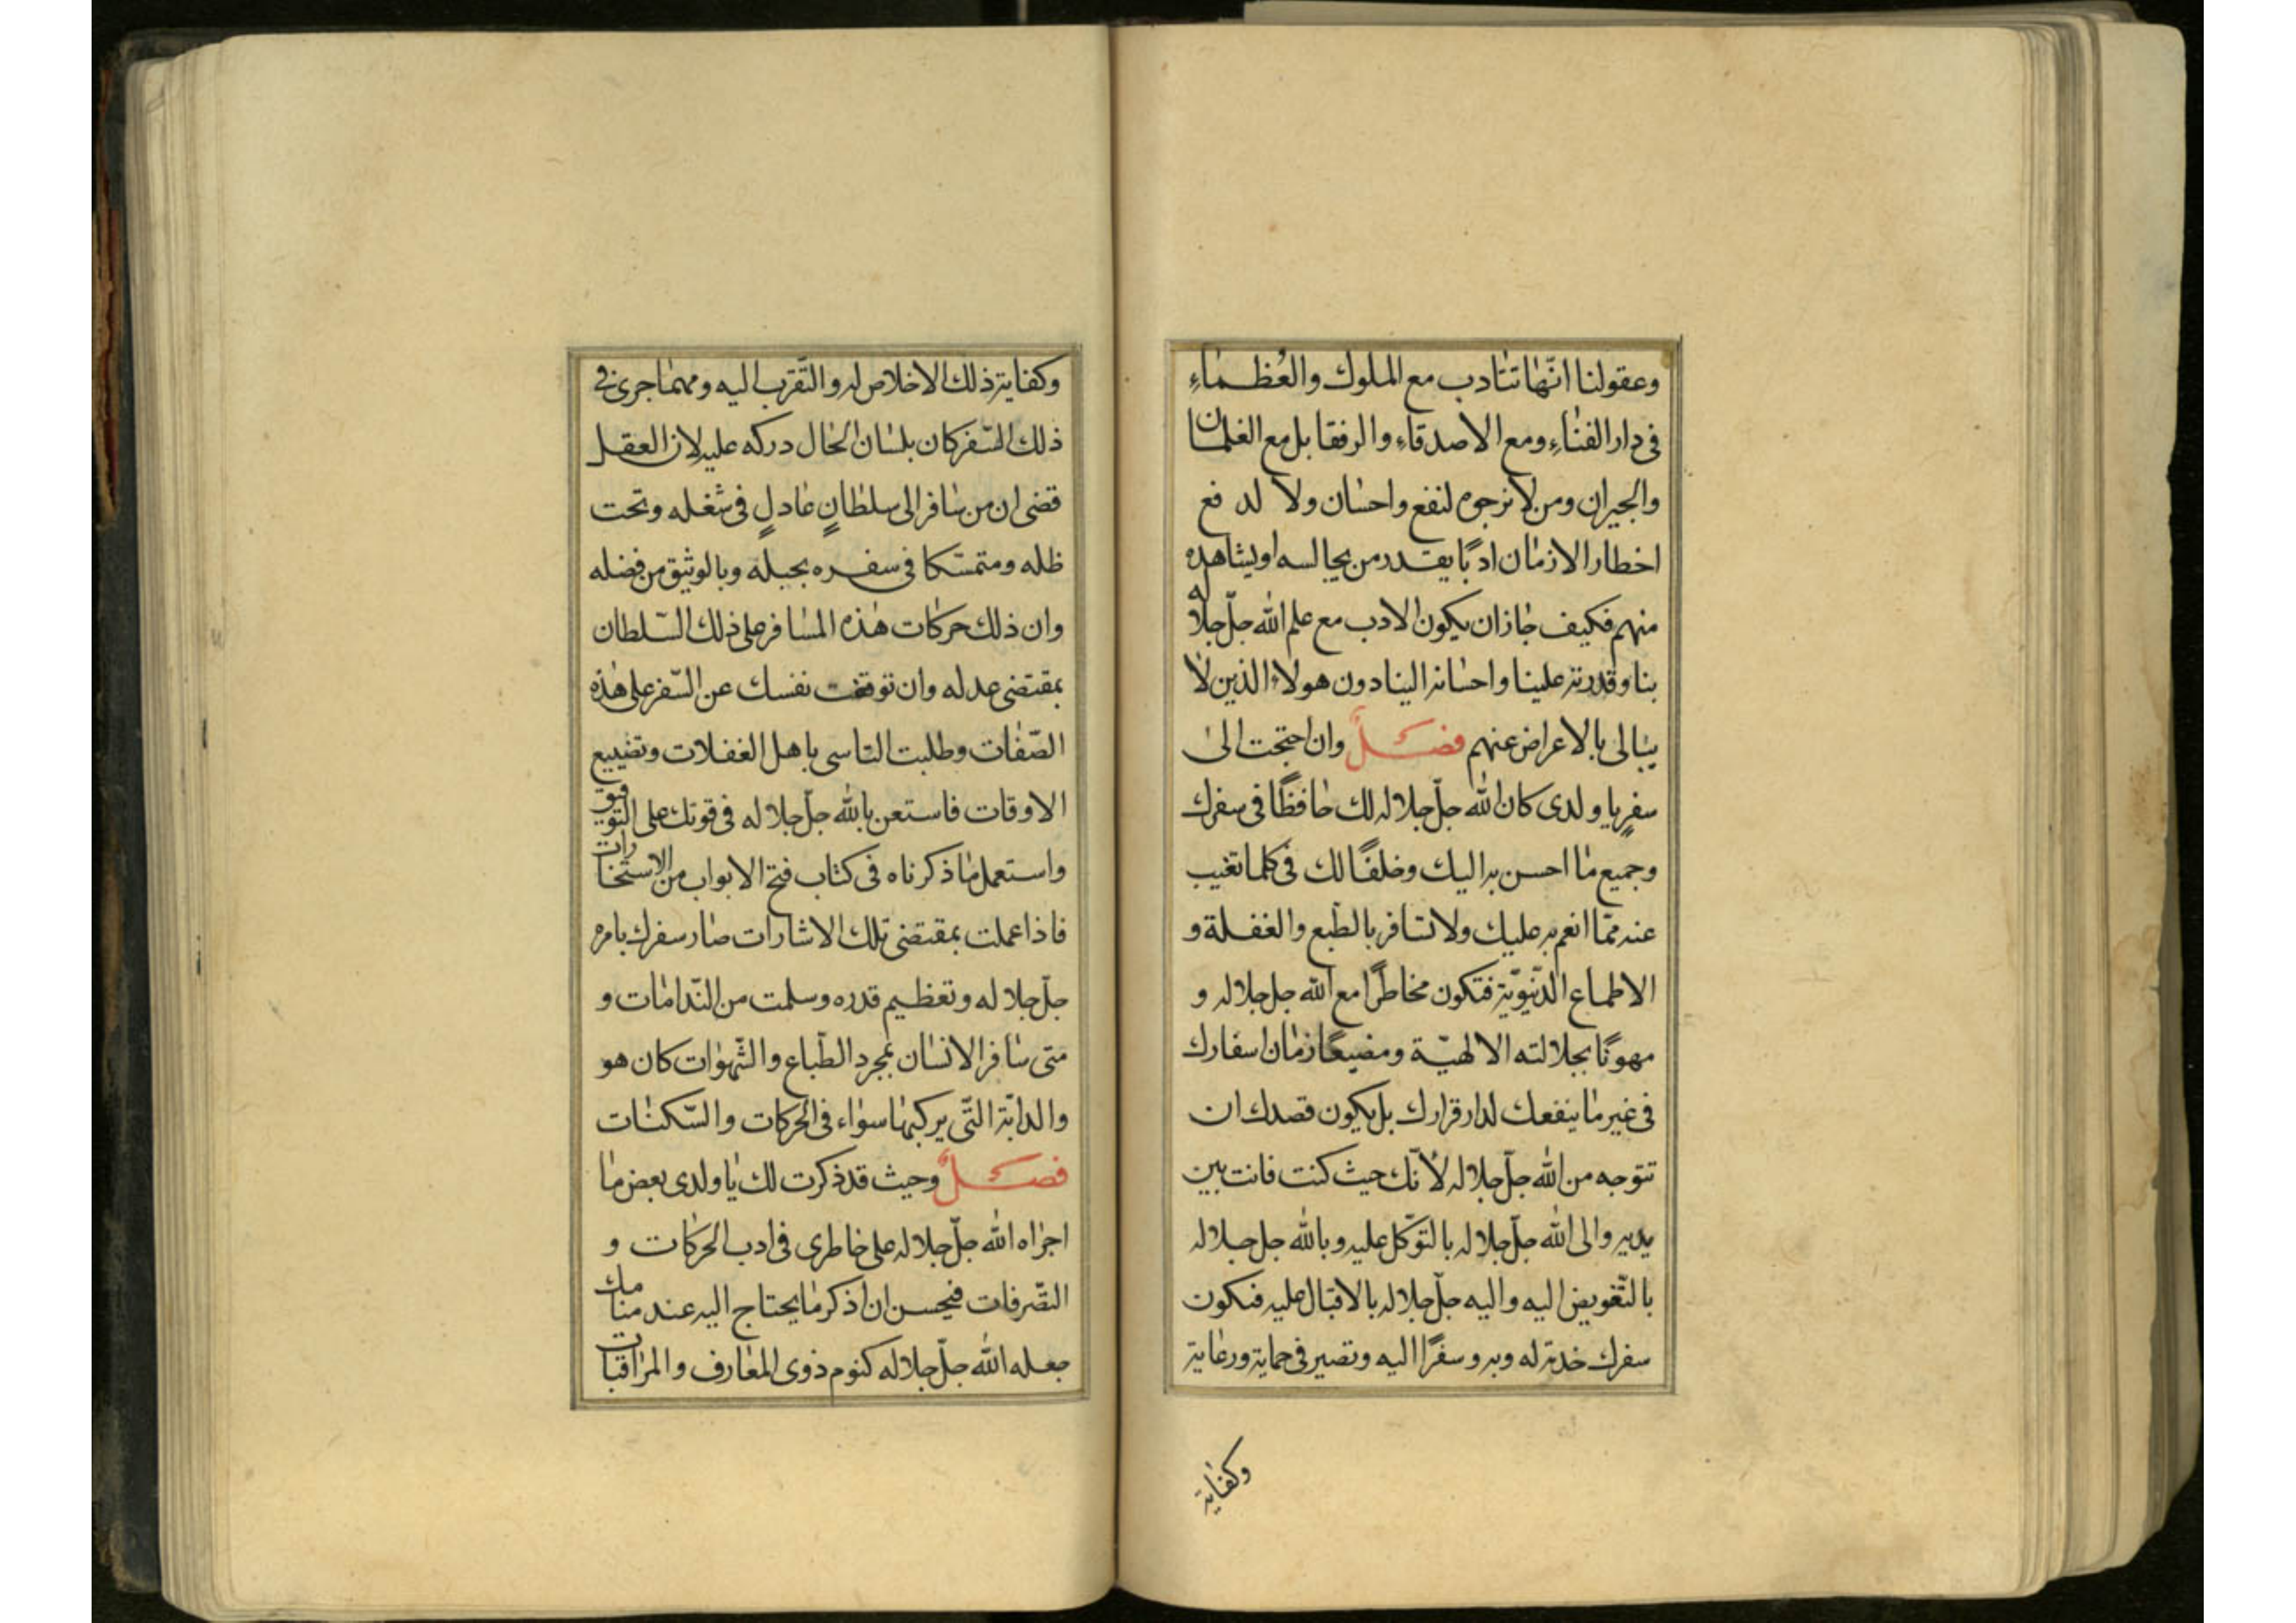 وعقولنا انّها تتادب مع الملوك والعُظماءِ
فى دار الفناءِ ومع الاصدقاءِ والرفقا بل مع الغلمان
والجيران ومن لا نرجوه لنفع واحسان ولا لدفع
اخطار الازمان ادبًا بقدر من يجالسه او يشاهده
منهم فكيف جاز ان يكون الادب مع علم الله جلّ جلاله
بنا وقدرته علينا واحسانه الينا دون هولاء الذين لا
يبالى بالاعراض عنهم فصلٌ وان احتجت الى
سفرٍ يا ولدى كان الله جلّ جلاله لك حافظًا فى سفرك
وجميع ما احسن به اليك وخلفًا لك فى كلما تغيب
عنه ممّا انعم به عليك ولا تسافر بالطّبع والغفلة و
الاطماع الدّنيويّة فتكون مخاطرًا مع الله جل جلاله و
مهونًا بجلالته الالهيّة ومضيعًا زمان اسفارك
فى غير ما ينفعك لدار قرارك بل يكون قصدك ان
تتوجه من الله جلّ جلاله لأنّك حيث كنت فانت بين
يديه والى الله جلّ جلاله بالتوّكل عليه وبالله جل جلاله
بالتّفويض اليه واليه جلّ جلاله بالاقبال عليه فتكون
سفرك خدمته له وبه وسفرًا اليه وتصير فى حماية ورعاية
وكفاية
وكفاية ذلك الاخلاص له والتّقرب اليه ومهما جرى فى
ذلك السّفر كان بلسان الحال دركه عليه لان العقل
قضى ان من سافر الى سلطانٍ عادلٍ فى شغله وتحت
ظله ومتمسّكا فى سفره بحبله وبالوثيق من فضله
وان ذلك حركات هذه المسافر على ذلك السّلطان
بمقتضى عدله وان توقفت نفسك عن السّفر على هذه
الصّفات وطلبت التاسى باهل الغفلات وتضييع
الاوقات فاستعن بالله جلّ جلاله فى قوتك على التوفيق
واستعمل ما ذكرناه فى كتاب فتح الابواب من الاستخارات
فاذا عملت بمقتضى تلك الاشارات صار سفرك بامره
جلّ جلاله وتعظيم قدره وسلمت من النّدامات و
متى سافر الانسان بمجرد الطّباع والشّهوات كان هو
والدابّة التّى يركبها سواء فى الحركات والسّكنات
فصلٌ وحيث قد ذكرت لك يا ولدى بعض ما
اجراه الله جلّ جلاله على خاطرى فى ادب الحركات و
التصّرفات فيحسن ان اذكر ما يحتاج اليه عند منامك
جعله الله جلّ جلاله كنوم ذوى المعارف والمراقبات